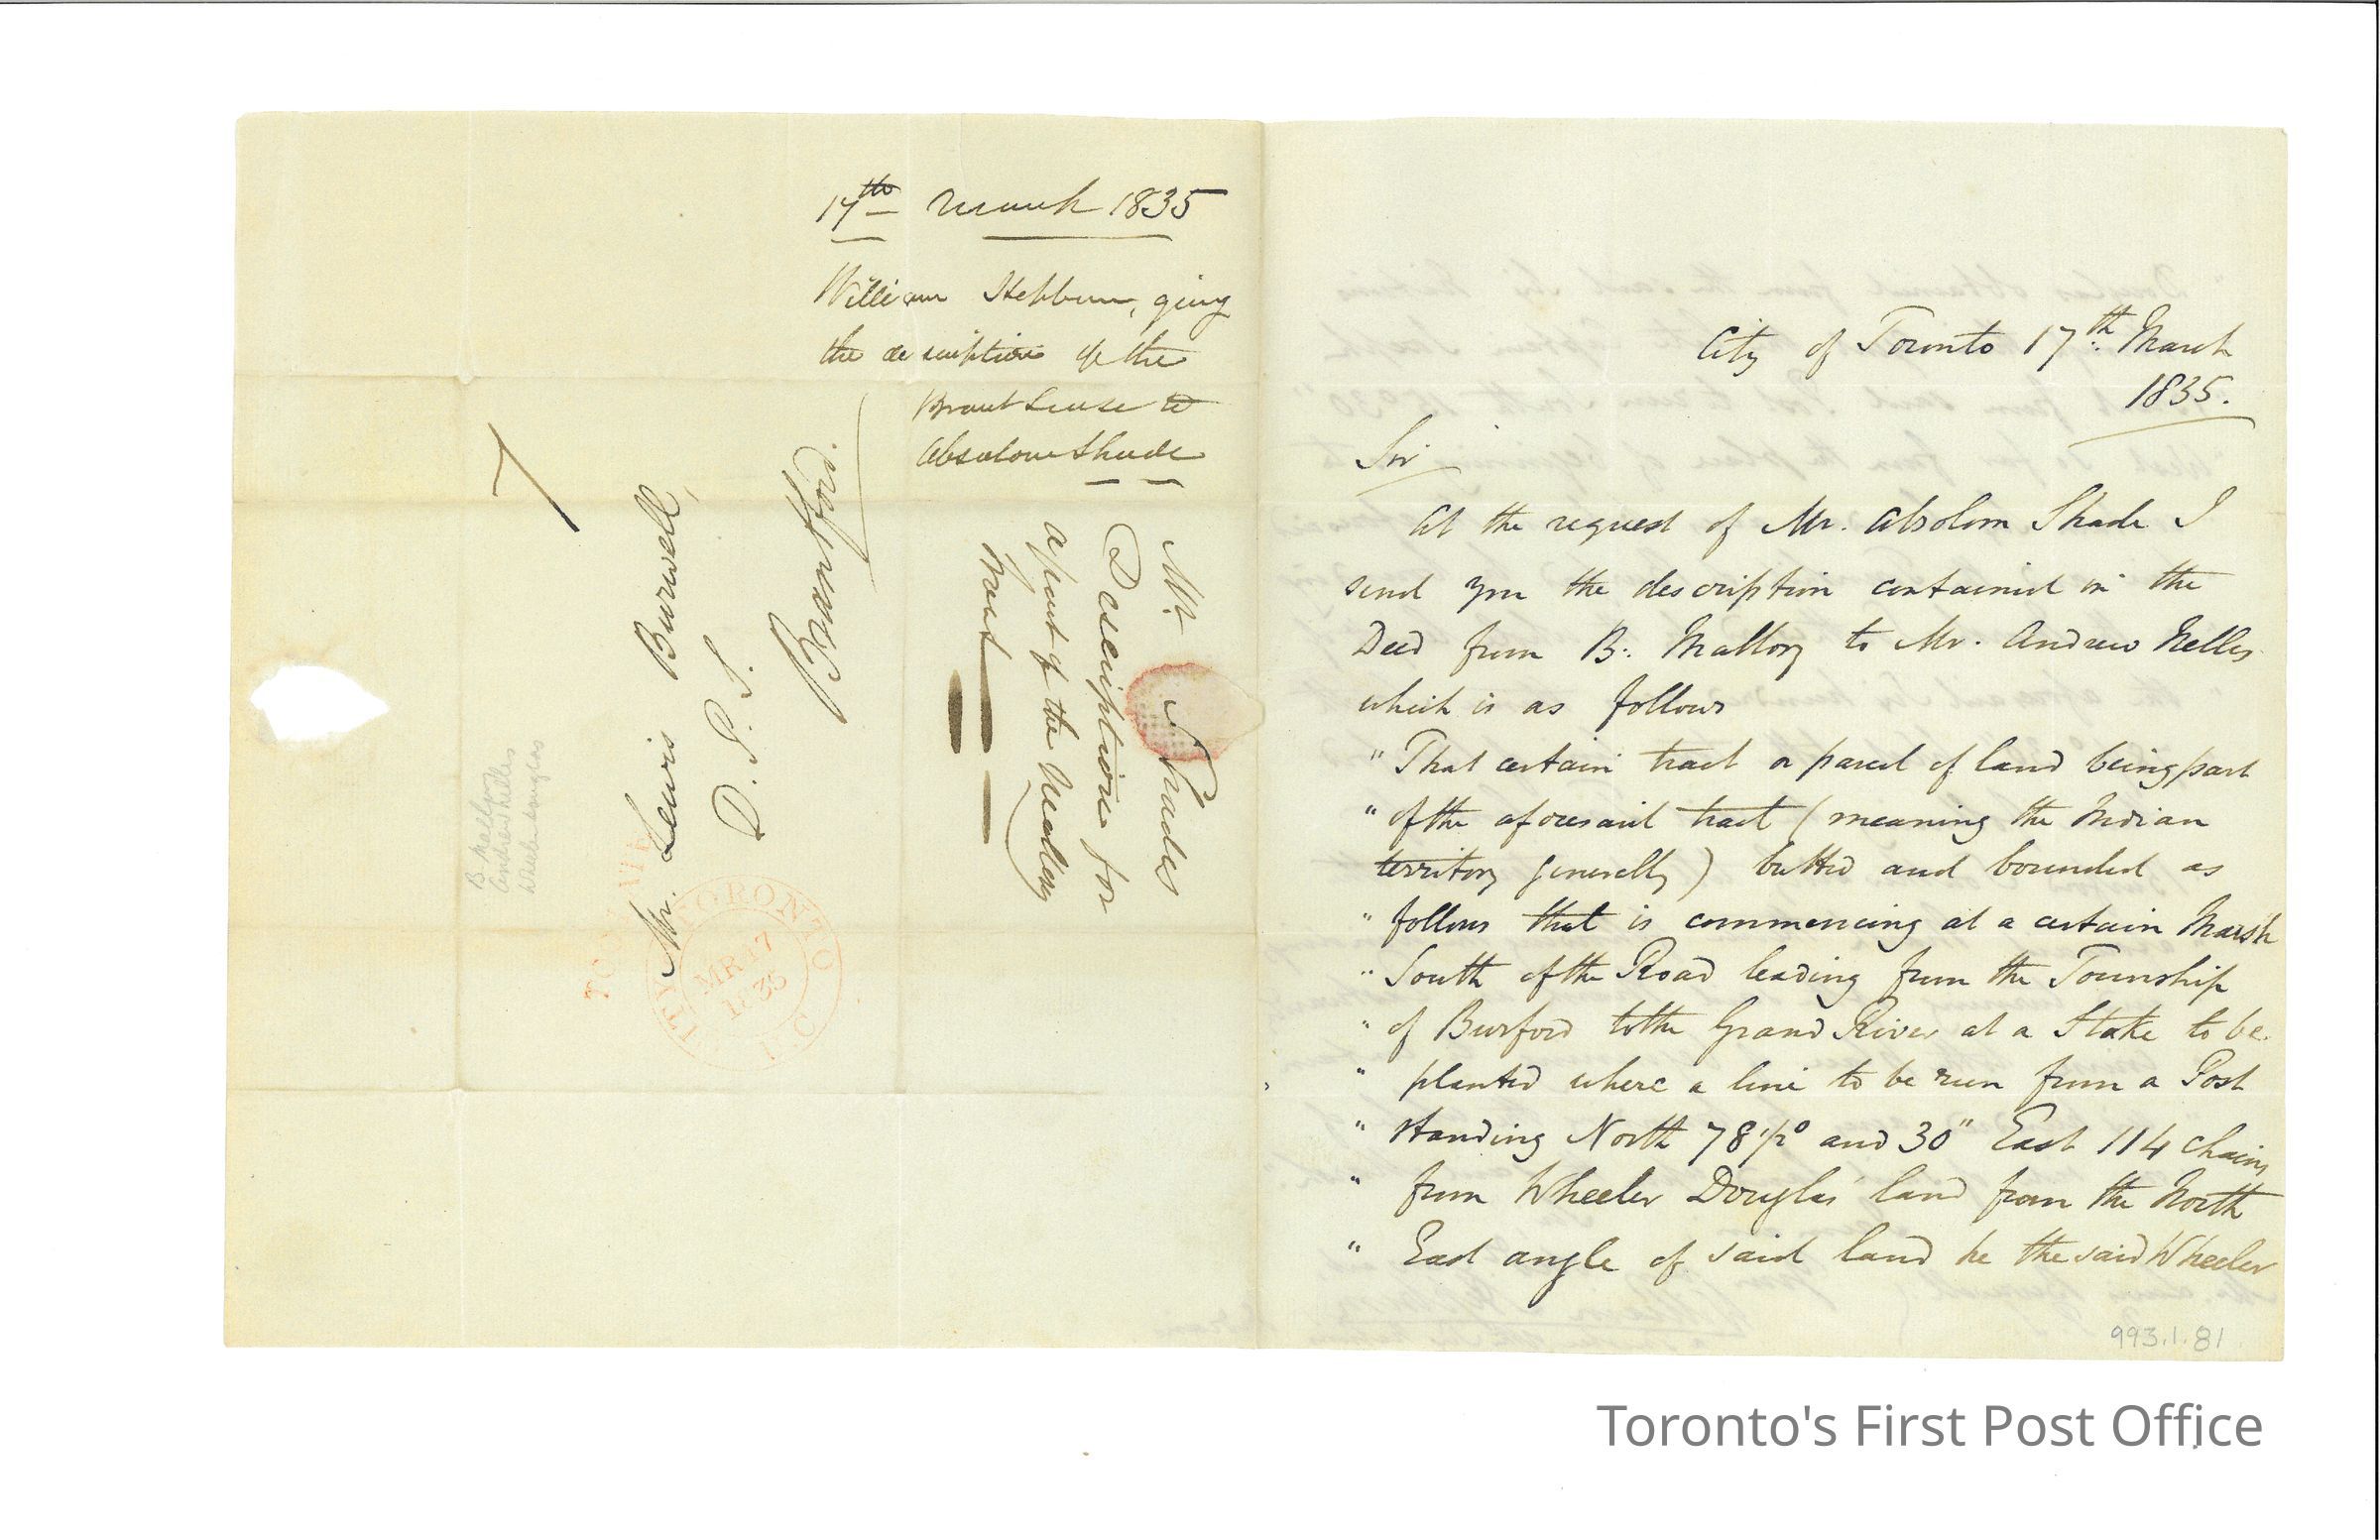 17th March 1835
William Hepburn, giving
the description of the
Brant Lease to
Absalom Shade
Mr Shades
Description for
a part of the Medley
7
Mr. Lewis Burwell,
D. P. S.
Brantford.
B. Mallory
Andrew Nelles
Wheeler Douglas
CITY TORONTO U.C
MR 17
1835
City of Toronto 17th March
1835.
Sir
At the request of Mr. Absolom Shade I
send you the description contained in the
Deed from B. Mallory to Mr. Andrew Nelles
which is as follows
" That certain tract or parcel of land being part
" of the aforesaid tract (meaning the Indian
territory generally) butted and bounded as
" follows that is commencing at a certain Marsh
" South of the Road leading from the Township
" of Burford to the Grand River at a Stake to be
" planted where a line to be run from a Post
" standing North 78 1/2° and 30" East 114 chains
" from Wheeler Douglas' land from the North
" East angle of said land he the said Wheeler
993.1.81
Toronto's First Post Office